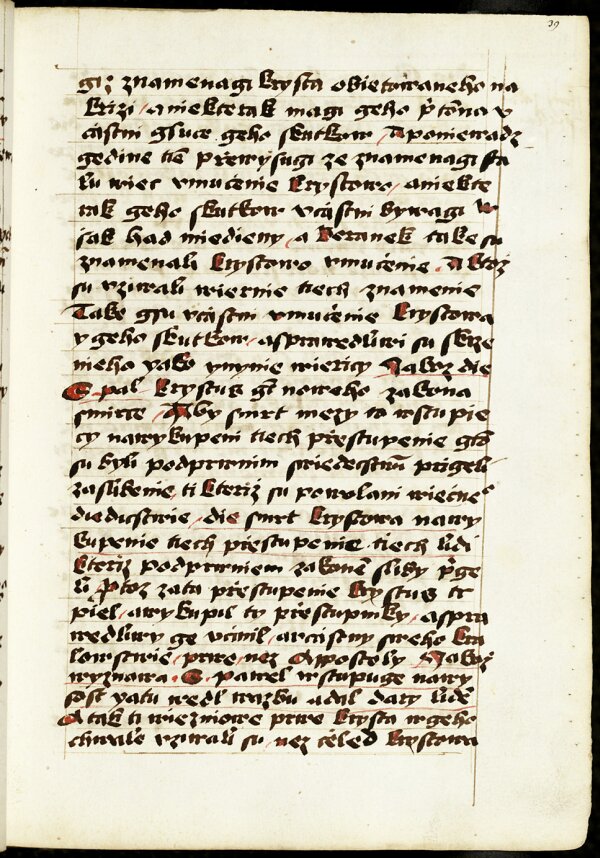 39
giz znamenagi krysta obietowaneho na
krizi / a niekterak magi geho przitomna v
czastni gsuce geho skutkow A poniewadz
gedine tiem prewysugi ze znamenagi sta
lu wiec vmuczenie krystowo / a niekte
rak geho skutkow vczastni bywagi W
jak had miedieny / a Beranek take su
znamenali krystowo vmuczenie A ktoz
su vziwali wiernie tiech znamenie
Tako gsu vczastni vmuczenie krystowa
y geho skutkow / a sprawedliwi su skrze
nieho yako ynynie wierzicy Jakoz die
S pal krystus gt noweho zakona
smirce / Aby smrt mezy to wstupie
cy nawykupeni tiech przestupenie gto
su byli podprwnim swiedecstwm prigeli
zaslibenie ti kteriz su powolani wiecne°
diedicstwie / die smrt krystowa nawy
kupenie tiech przestupenie tiech lidi
kteriz podprwniem zakone sliby prige
li Protoz zata przestupenie krystus tr
piel / a wykupil ty przestupniky / a spra
wedliwy ge vcinil / a vczastny sweho kra
lowstwie / prwe / nez Apostoly Jakoz
wyznawa S pawel wstupuge nawy
sost yatu wedl wazbu a dal dary lidem
A tak ti wiezniowe prwe krysta w geho
chwale vziwali su / nez czeled krystowa